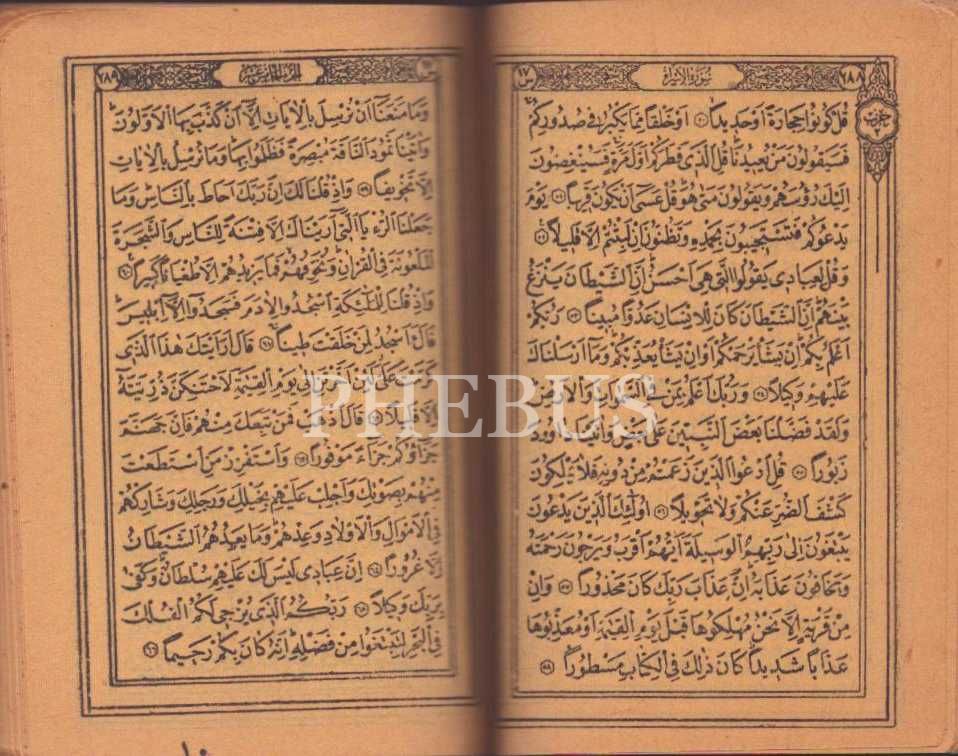 ٢٨٨
سورة الاسراء
١٧
حزب
قُلْ كُونُوا حِجَارَةً اَوْ حَدِيدًاۙ ٥٠ اَوْ خَلْقًا مِمَّا يَكْبُرُ فِى صُدُورِكُمْۚ
فَسَيَقُولُونَ مَنْ يُعِيدُنَاۜ قُلِ الَّذِى فَطَرَكُمْ اَوَّلَ مَرَّةٍۚ فَسَيُنْغِضُونَ
اِلَيْكَ رُؤُسَهُمْ وَيَقُولُونَ مَتٰى هُوَۜ قُلْ عَسٰٓى اَنْ يَكُونَ قَرِيبًا ٥١ يَوْمَ
يَدْعُوكُمْ فَتَسْتَجِيبُونَ بِحَمْدِهِ وَتَظُنُّونَ اِنْ لَبِثْتُمْ اِلَّا قَلِيلًا۟ ٥٢
وَقُلْ لِعِبَادِى يَقُولُوا الَّتِى هِىَ اَحْسَنُۜ اِنَّ الشَّيْطَانَ يَنْزَغُ
بَيْنَهُمْۜ اِنَّ الشَّيْطَانَ كَانَ لِلْاِنْسَانِ عَدُوًّا مُبِينًا ٥٣ رَبُّكُمْ
اَعْلَمُ بِكُمْۜ اِنْ يَشَأْ يَرْحَمْكُمْ اَوْ اِنْ يَشَأْ يُعَذِّبْكُمْۜ وَمَٓا اَرْسَلْنَاكَ
عَلَيْهِمْ وَكِيلًا ٥٤ وَرَبُّكَ اَعْلَمُ بِمَنْ فِى السَّمٰوَاتِ وَالْاَرْضِۜ
وَلَقَدْ فَضَّلْنَا بَعْضَ النَّبِيِّينَ عَلٰى بَعْضٍ وَاٰتَيْنَا دَاوُدَ
زَبُورًا ٥٥ قُلِ ادْعُوا الَّذِينَ زَعَمْتُمْ مِنْ دُونِهِ فَلَا يَمْلِكُونَ
كَشْفَ الضُّرِّ عَنْكُمْ وَلَا تَحْوِيلًا ٥٦ اُو۬لٰٓئِكَ الَّذِينَ يَدْعُونَ
يَبْتَغُونَ اِلٰى رَبِّهِمُ الْوَسِيلَةَ اَيُّهُمْ اَقْرَبُ وَيَرْجُونَ رَحْمَتَهُ
وَيَخَافُونَ عَذَابَهُۜ اِنَّ عَذَابَ رَبِّكَ كَانَ مَحْذُورًا ٥٧ وَاِنْ
مِنْ قَرْيَةٍ اِلَّا نَحْنُ مُهْلِكُوهَا قَبْلَ يَوْمِ الْقِيٰمَةِ اَوْ مُعَذِّبُوهَا
عَذَابًا شَدِيدًاۜ كَانَ ذٰلِكَ فِى الْكِتَابِ مَسْطُورًا ٥٨
الجزء الخامس عشر
٢٨٩
وَمَا مَنَعَنَٓا اَنْ نُرْسِلَ بِالْاٰيَاتِ اِلَّٓا اَنْ كَذَّبَ بِهَا الْاَوَّلُونَۜ
وَاٰتَيْنَا ثَمُودَ النَّاقَةَ مُبْصِرَةً فَظَلَمُوا بِهَاۜ وَمَا نُرْسِلُ بِالْاٰيَاتِ
اِلَّا تَخْوِيفًا ٥٩ وَاِذْ قُلْنَا لَكَ اِنَّ رَبَّكَ اَحَاطَ بِالنَّاسِۜ وَمَا
جَعَلْنَا الرُّءْيَا الَّتِٓى اَرَيْنَاكَ اِلَّا فِتْنَةً لِلنَّاسِ وَالشَّجَرَةَ
الْمَلْعُونَةَ فِى الْقُرْاٰنِۜ وَنُخَوِّفُهُمْۙ فَمَا يَزِيدُهُمْ اِلَّا طُغْيَانًا كَبِيرًا۟ ٦٠
وَاِذْ قُلْنَا لِلْمَلٰٓئِكَةِ اسْجُدُوا لِاٰدَمَ فَسَجَدُٓوا اِلَّٓا اِبْلِيسَۜ
قَالَ ءَاَسْجُدُ لِمَنْ خَلَقْتَ طِينًاۚ ٦١ قَالَ اَرَاَيْتَكَ هٰذَا الَّذِى
كَرَّمْتَ عَلَىَّۘ لَئِنْ اَخَّرْتَنِ اِلٰى يَوْمِ الْقِيٰمَةِ لَاَحْتَنِكَنَّ ذُرِّيَّتَهُٓ
اِلَّا قَلِيلًا ٦٢ قَالَ اذْهَبْ فَمَنْ تَبِعَكَ مِنْهُمْ فَاِنَّ جَهَنَّمَ
جَزَٓاؤُكُمْ جَزَٓاءً مَوْفُورًا ٦٣ وَاسْتَفْزِزْ مَنِ اسْتَطَعْتَ
مِنْهُمْ بِصَوْتِكَ وَاَجْلِبْ عَلَيْهِمْ بِخَيْلِكَ وَرَجِلِكَ وَشَارِكْهُمْ
فِى الْاَمْوَالِ وَالْاَوْلَادِ وَعِدْهُمْۜ وَمَا يَعِدُهُمُ الشَّيْطَانُ
اِلَّا غُرُورًا ٦٤ اِنَّ عِبَادِى لَيْسَ لَكَ عَلَيْهِمْ سُلْطَانٌۜ وَكَفٰى
بِرَبِّكَ وَكِيلًا ٦٥ رَبُّكُمُ الَّذِى يُزْجِى لَكُمُ الْفُلْكَ
فِى الْبَحْرِ لِتَبْتَغُوا مِنْ فَضْلِهِۜ اِنَّهُ كَانَ بِكُمْ رَحِيمًا ٦٦
PHEBUS